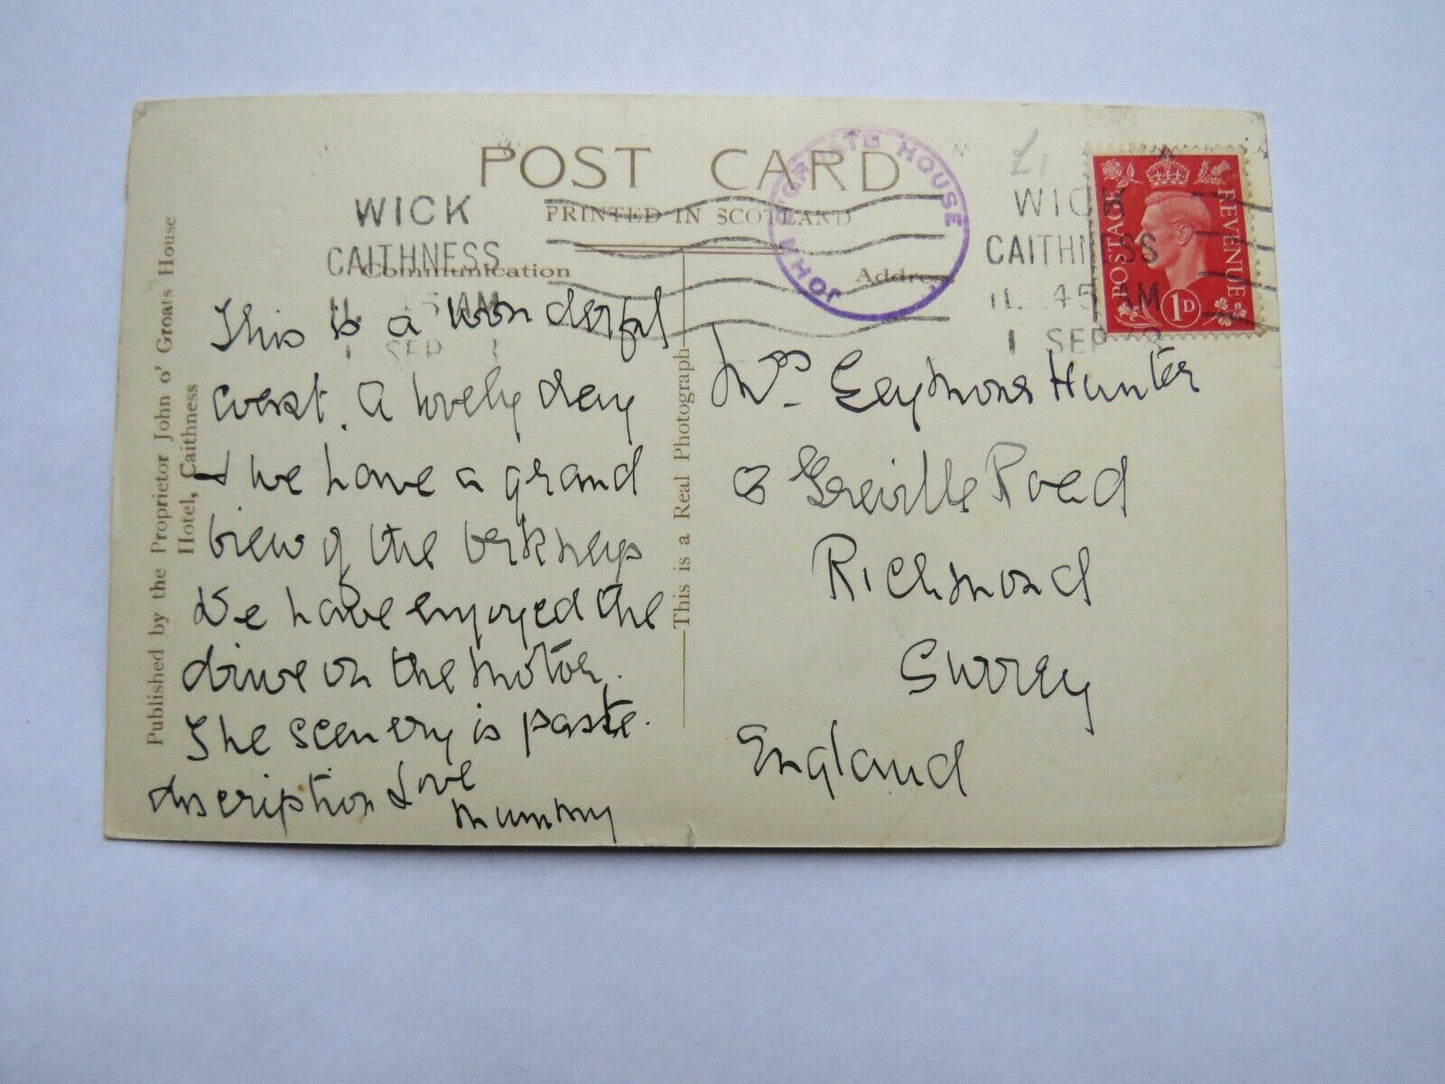 POST CARD
PRINTED IN SCOTLAND
Communication
Address
WICK
CAITHNESS
11 45 AM
1 SEP
WICK
CAITHNESS
11. 45 AM
1 SEP
JOHN O'GROATS HOUSE
£1
POSTAGE
REVENUE
1D
Published by the Proprietor John o' Groats House
Hotel, Caithness
This is a Real Photograph
This is a wonderful
coast. A lovely day
& we have a grand
view of the Orkneys
We have enjoyed the
drive on the motor.
The scenery is past
discription Love
Mummy
Mrs Seymour Hunter
3 Greville Road
Richmond
Surrey
England